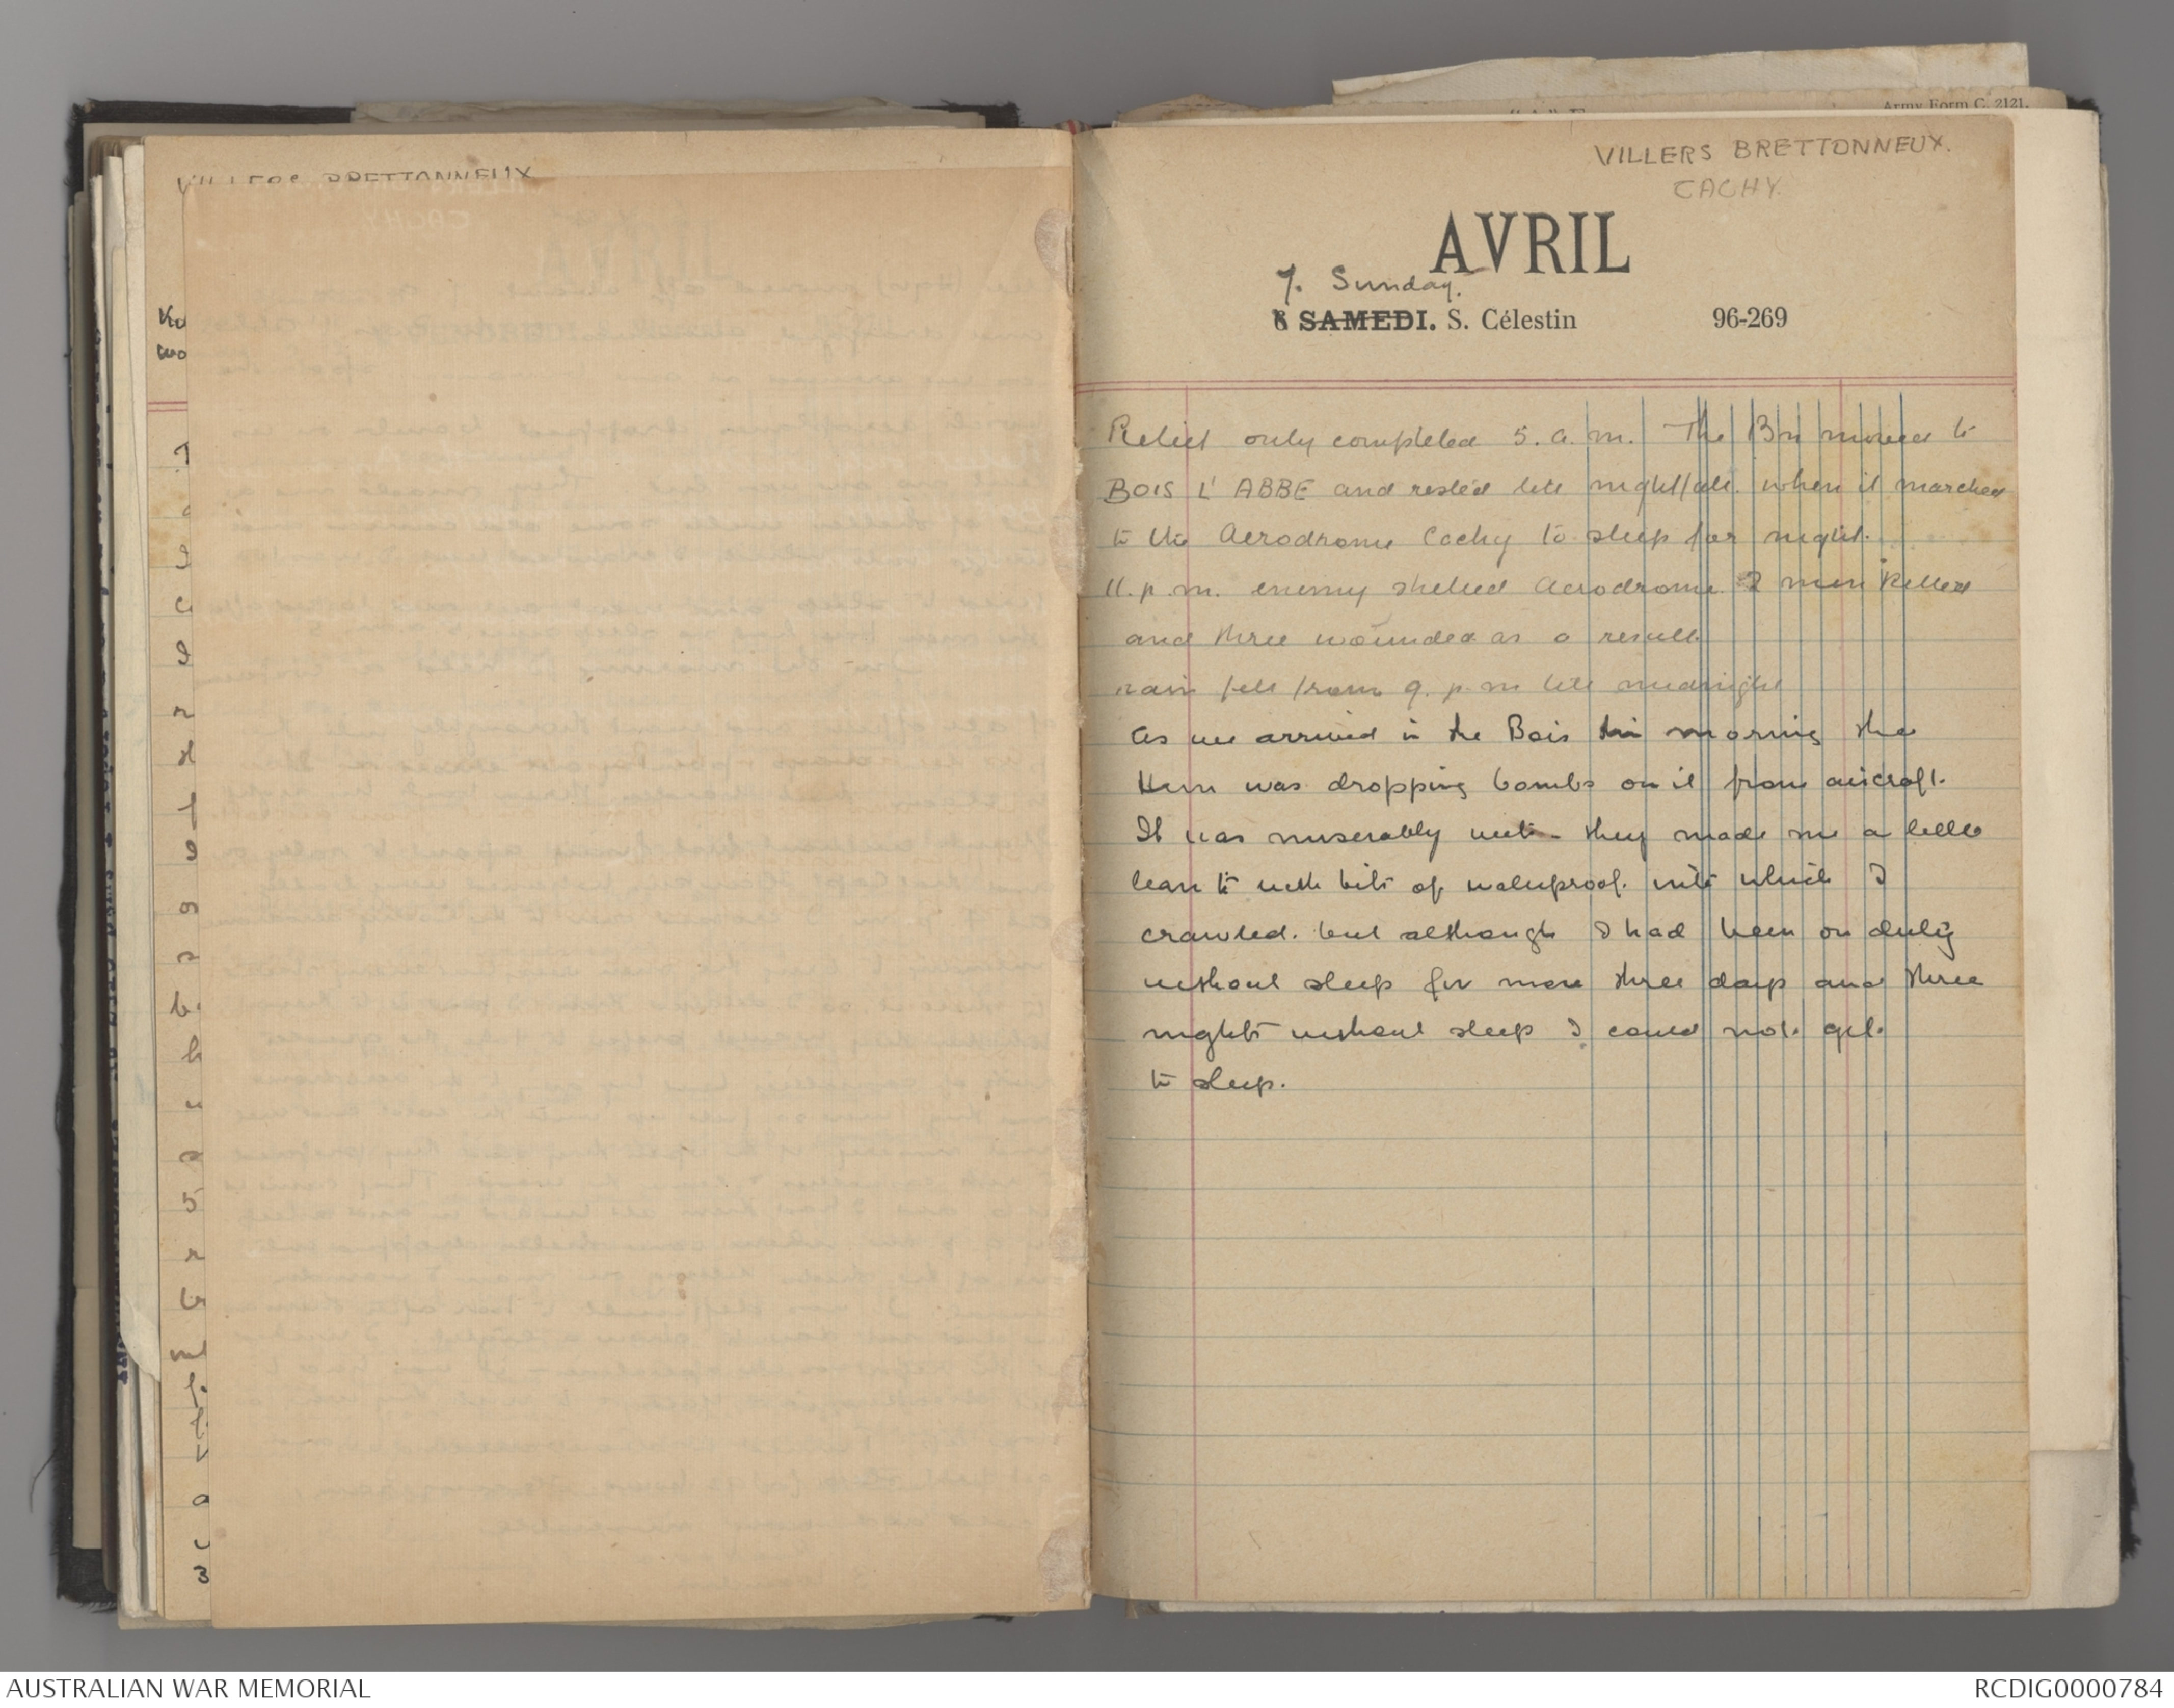 VILLERS BRETTONNEUX
VILLERS BRETTONNEUX.
CACHY.
Army Form C. 2121.
AVRIL
7. Sunday.
6 SAMEDI. S. Célestin 96-269
Relief only completed 5. a. m. The Bn moved to
BOIS L' ABBE and rested till nightfall. when it marched
to the Aerodrome Cachy to sleep for night.
11. p. m. enemy shelled aerodrome 2 men killed
and three wounded as a result
rain fell from 9. p. m till midnight
As we arrived in the Bois this morning the
Hun was dropping bombs on it from aircraft.
It was miserably wet - they made me a little
lean to with bits of waterproof. into which I
crawled. but although I had been on duty
without sleep for more three days and three
nights without sleep I could not. get.
to sleep.
AUSTRALIAN WAR MEMORIAL
RCDIG0000784